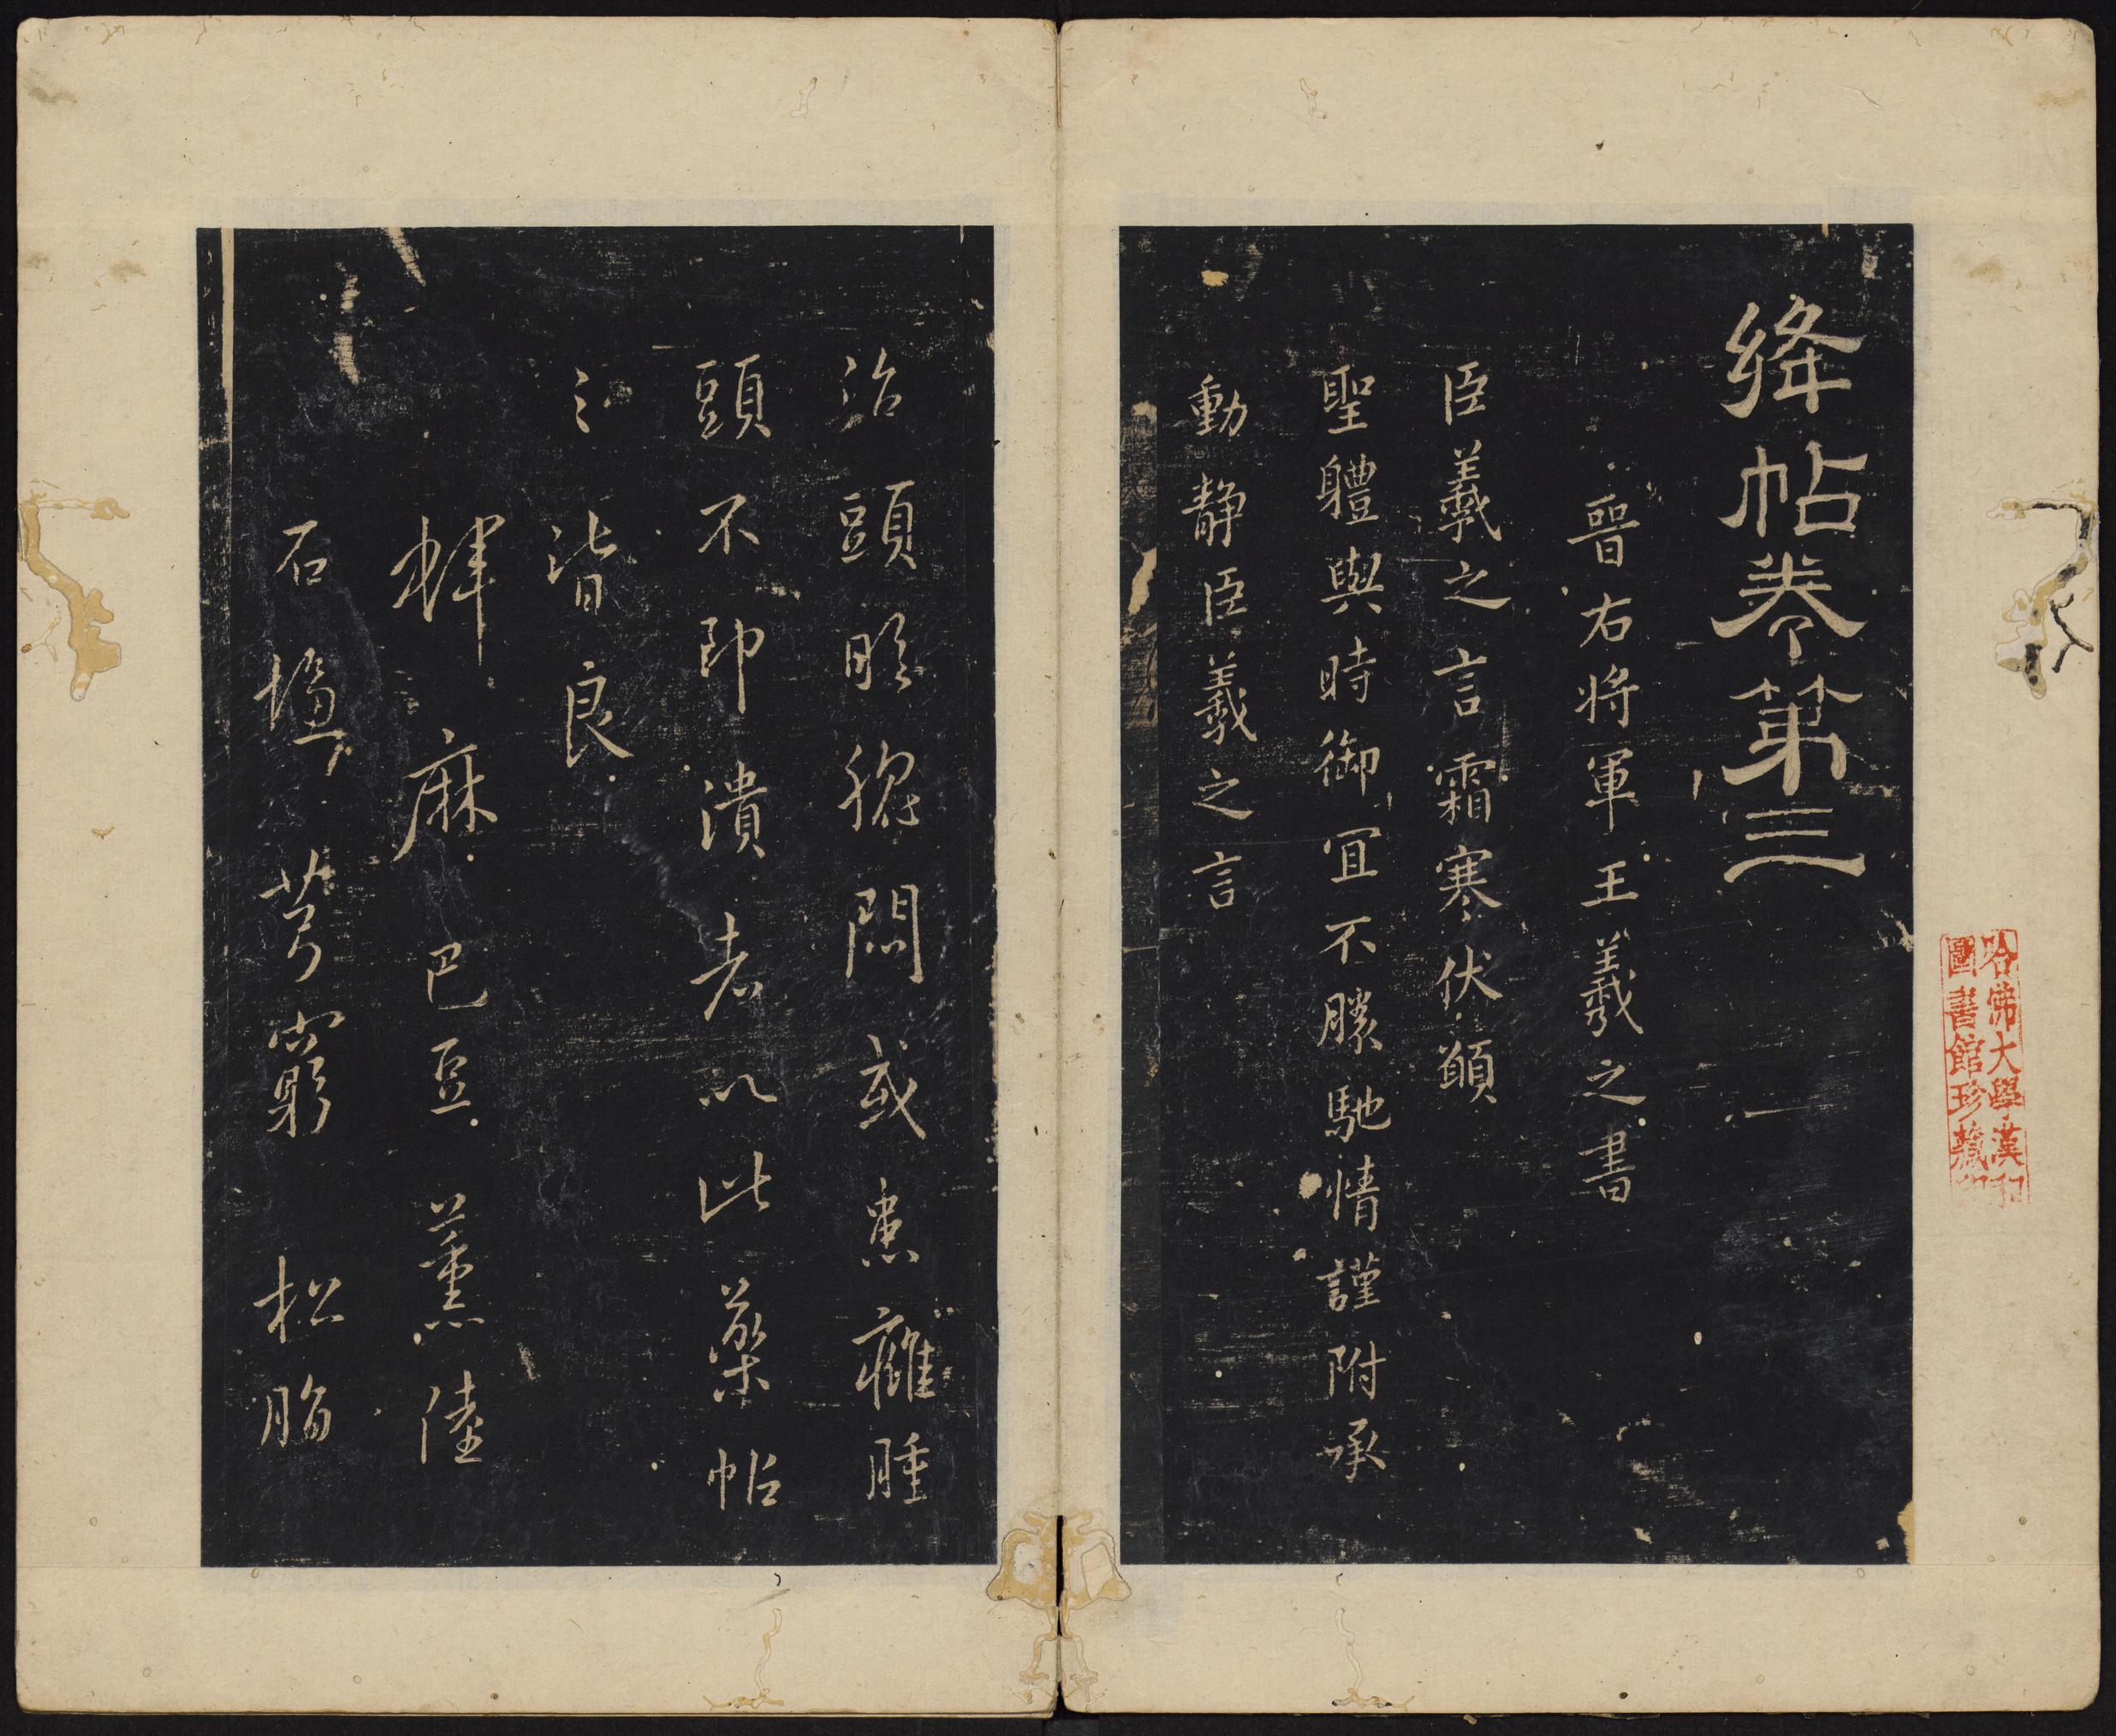 絳帖卷第三
晉右將軍王羲之書
臣羲之言霜寒伏願
聖體與時御宜不勝馳情謹附承
動靜臣羲之言
治頭眩腦悶或患癰腫
頭不即潰者以此藥帖
之皆良
蜱麻 巴豆 薰陸
石鹽 芎窮 松脂
哈佛大學漢和
圖書館珍藏印